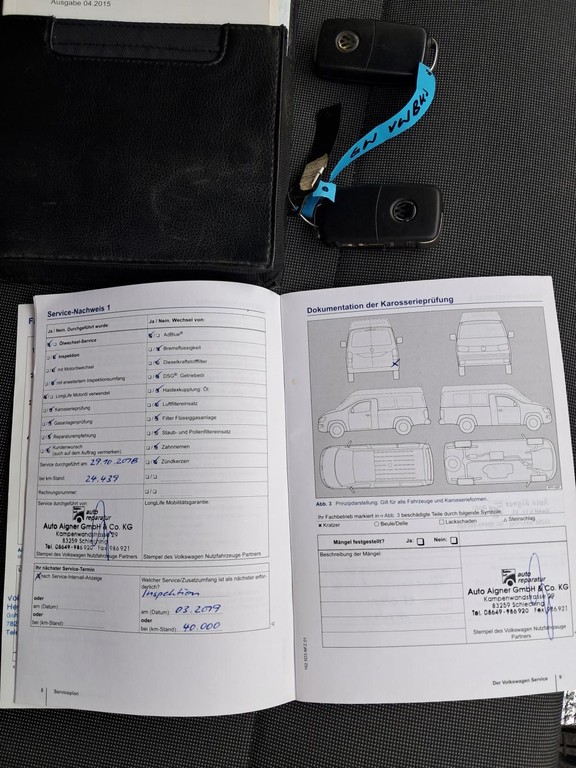 Ausgabe 04.2015
GW VWBus
Service-Nachweis 1
Ja / Nein. Durchgeführt wurde:
Ölwechsel-Service
Inspektion
mit Motorwechsel
mit erweitertem Inspektionsumfang
LongLife Motoröl verwendet
Karosserieprüfung
Gasanlagenprüfung
Reparaturempfehlung
Kundenwunsch
(auch auf dem Auftrag vermerken)
Service durchgeführt am: 29.10.2018
bei km-Stand: 24.439
Rechnungsnummer:
Service durchgeführt von:
auto
reparatur
Auto Aigner GmbH & Co. KG
Kampenwandstrasse 29
83259 Schleching
Tel. 08649-986 920 Fax 986 921
Stempel des Volkswagen Nutzfahrzeuge Partners
Ja / Nein. Wechsel von:
AdBlue®
Bremsflüssigkeit
Dieselkraftstofffilter
DSG® Getriebeöl
Haldexkupplung: Öl
Luftfiltereinsatz
Filter Flüssiggasanlage
Staub- und Pollenfiltereinsatz
Zahnriemen
Zündkerzen
LongLife Mobilitätsgarantie:
Stempel des Volkswagen Nutzfahrzeuge Partners
Ihr nächster Service-Termin
nach Service-Intervall-Anzeige
oder
am (Datum):
oder
bei (km-Stand):
Welcher Service/Zusatzumfang ist als nächster erforderlich?
Inspektion
oder
am (Datum): 03.2019
oder
bei (km-Stand): 40.000
8 Serviceplan
Dokumentation der Karosserieprüfung
x
Abb. 3 Prinzipdarstellung: Gilt für alle Fahrzeuge und Karosserieformen.
Ihr Fachbetrieb markiert in ⇒ Abb. 3 beschädigte Teile durch folgende Symbole:
Kratzer Beule/Delle Lackschaden Steinschlag
Mängel festgestellt? Ja: Nein:
Beschreibung der Mängel:
auto
reparatur
Auto Aigner GmbH & Co. KG
Kampenwandstrasse 29
83259 Schleching
Tel. 08649-986 920 Fax 986 921
Stempel des Volkswagen Nutzfahrzeuge
Partners
Der Volkswagen Service 9